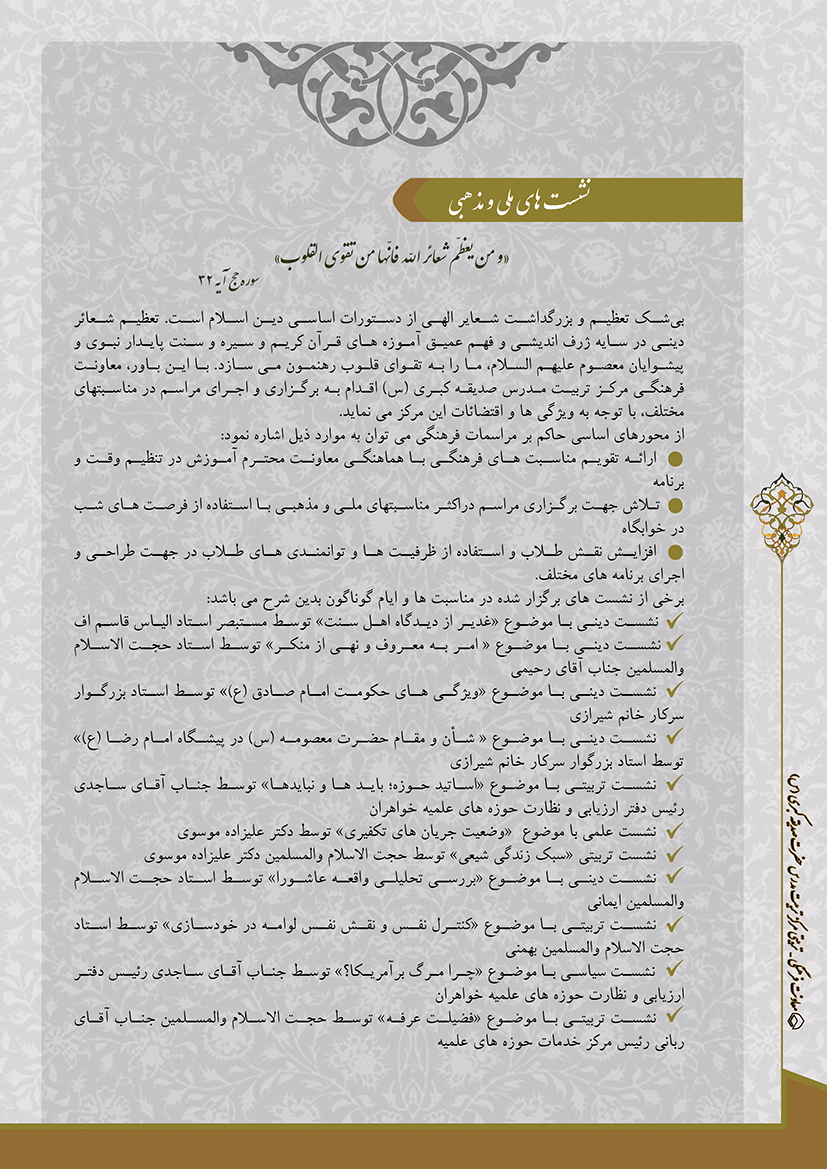 نشست های ملی و مذهبی
«و من یعظّم شعائر الله فانّها من تقوی القلوب»
سوره حج آیه ۳۲
بی‌شک تعظیم و بزرگداشت شعایر الهی از دستورات اساسی دین اسلام است. تعظیم شعائر
دینی در سایه ژرف اندیشی و فهم عمیق آموزه های قرآن کریم و سیره و سنت پایدار نبوی و
پیشوایان معصوم علیهم السلام، ما را به تقوای قلوب رهنمون می سازد. با این باور، معاونت
فرهنگی مرکز تربیت مدرس صدیقه کبری (س) اقدام به برگزاری و اجرای مراسم در مناسبتهای
مختلف، با توجه به ویژگی ها و اقتضائات این مرکز می نماید.
از محورهای اساسی حاکم بر مراسمات فرهنگی می توان به موارد ذیل اشاره نمود:
● ارائه تقویم مناسبت های فرهنگی با هماهنگی معاونت محترم آموزش در تنظیم وقت و
برنامه
● تلاش جهت برگزاری مراسم دراکثر مناسبتهای ملی و مذهبی با استفاده از فرصت های شب
در خوابگاه
● افزایش نقش طلاب و استفاده از ظرفیت ها و توانمندی های طلاب در جهت طراحی و
اجرای برنامه های مختلف.
برخی از نشست های برگزار شده در مناسبت ها و ایام گوناگون بدین شرح می باشد:
✓ نشست دینی با موضوع «غدیر از دیدگاه اهل سنت» توسط مستبصر استاد الیاس قاسم اف
✓ نشست دینی با موضوع « امر به معروف و نهی از منکر» توسط استاد حجت الاسلام
والمسلمین جناب آقای رحیمی
✓ نشست دینی با موضوع «ویژگی های حکومت امام صادق (ع)» توسط استاد بزرگوار
سرکار خانم شیرازی
✓ نشست دینی با موضوع « شأن و مقام حضرت معصومه (س) در پیشگاه امام رضا (ع)»
توسط استاد بزرگوار سرکار خانم شیرازی
✓ نشست تربیتی با موضوع «اساتید حوزه؛ باید ها و نبایدها» توسط جناب آقای ساجدی
رئیس دفتر ارزیابی و نظارت حوزه های علمیه خواهران
✓ نشست علمی با موضوع «وضعیت جریان های تکفیری» توسط دکتر علیزاده موسوی
✓ نشست تربیتی «سبک زندگی شیعی» توسط حجت الاسلام والمسلمین دکتر علیزاده موسوی
✓ نشست دینی با موضوع «بررسی تحلیلی واقعه عاشورا» توسط استاد حجت الاسلام
والمسلمین ایمانی
✓ نشست تربیتی با موضوع «کنترل نفس و نقش نفس لوامه در خودسازی» توسط استاد
حجت الاسلام والمسلمین بهمنی
✓ نشست سیاسی با موضوع «چرا مرگ برآمریکا؟» توسط جناب آقای ساجدی رئیس دفتر
ارزیابی و نظارت حوزه های علمیه خواهران
✓ نشست تربیتی با موضوع «فضیلت عرفه» توسط حجت الاسلام والمسلمین جناب آقای
ربانی رئیس مرکز خدمات حوزه های علمیه
معاونت فرهنگی - تربیتی مرکز تربیت مدرس حضرت صدیقه کبری (س)